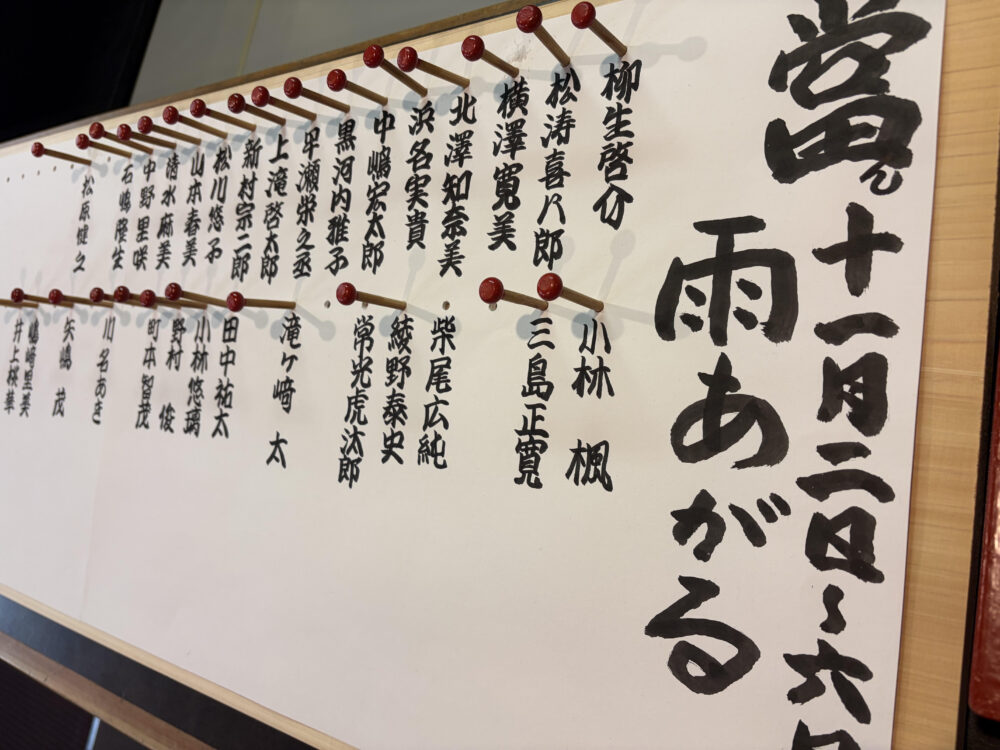 十一月二日~六日
雨あがる
柳生啓介
松涛喜八郎
横澤寛美
北澤知奈美
浜名実貴
中嶋宏太郎
黒河内雅子
早瀬栄之丞
上滝啓太郎
新村宗二郎
松川悠子
山本春美
清水麻美
中野里咲
石嶋隆生
松原健之
小林 楓
三島正寛
柴尾広純
綾野泰史
常光虎汰郎
滝ヶ﨑 太
田中祐太
小林悠璃
野村 俊
町本智茂
川名あき
矢嶋 茂
嶋﨑里美
井上桜華